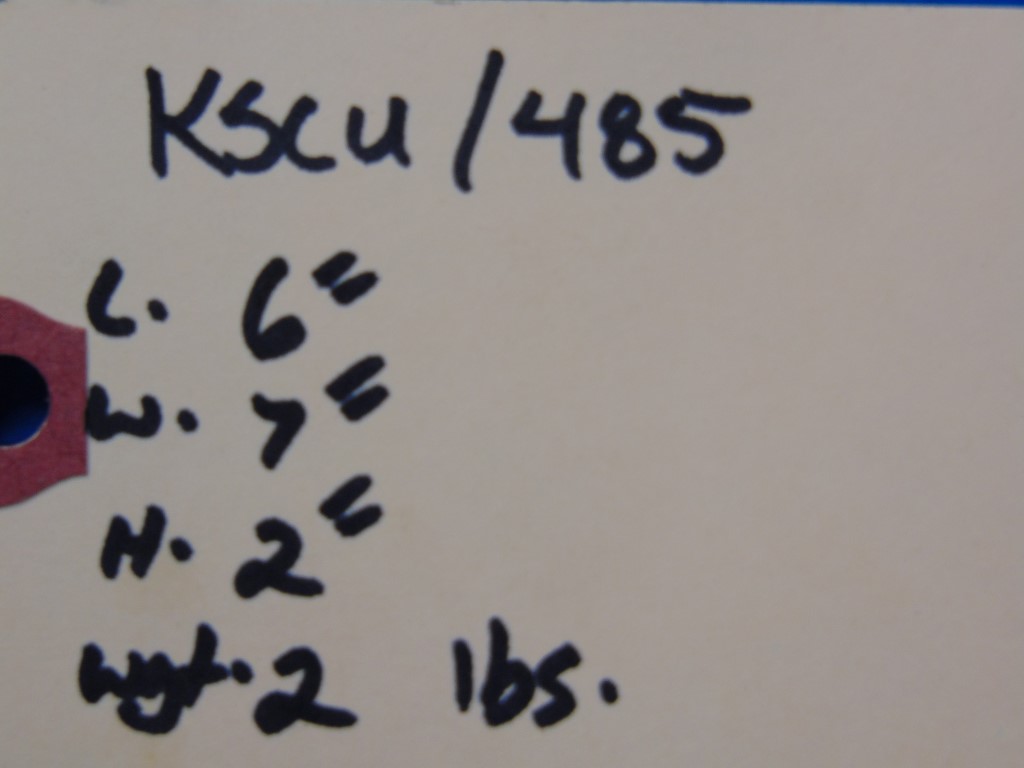 KSCU/485
L. 6"
W. 7"
H. 2"
Wgt. 2 lbs.